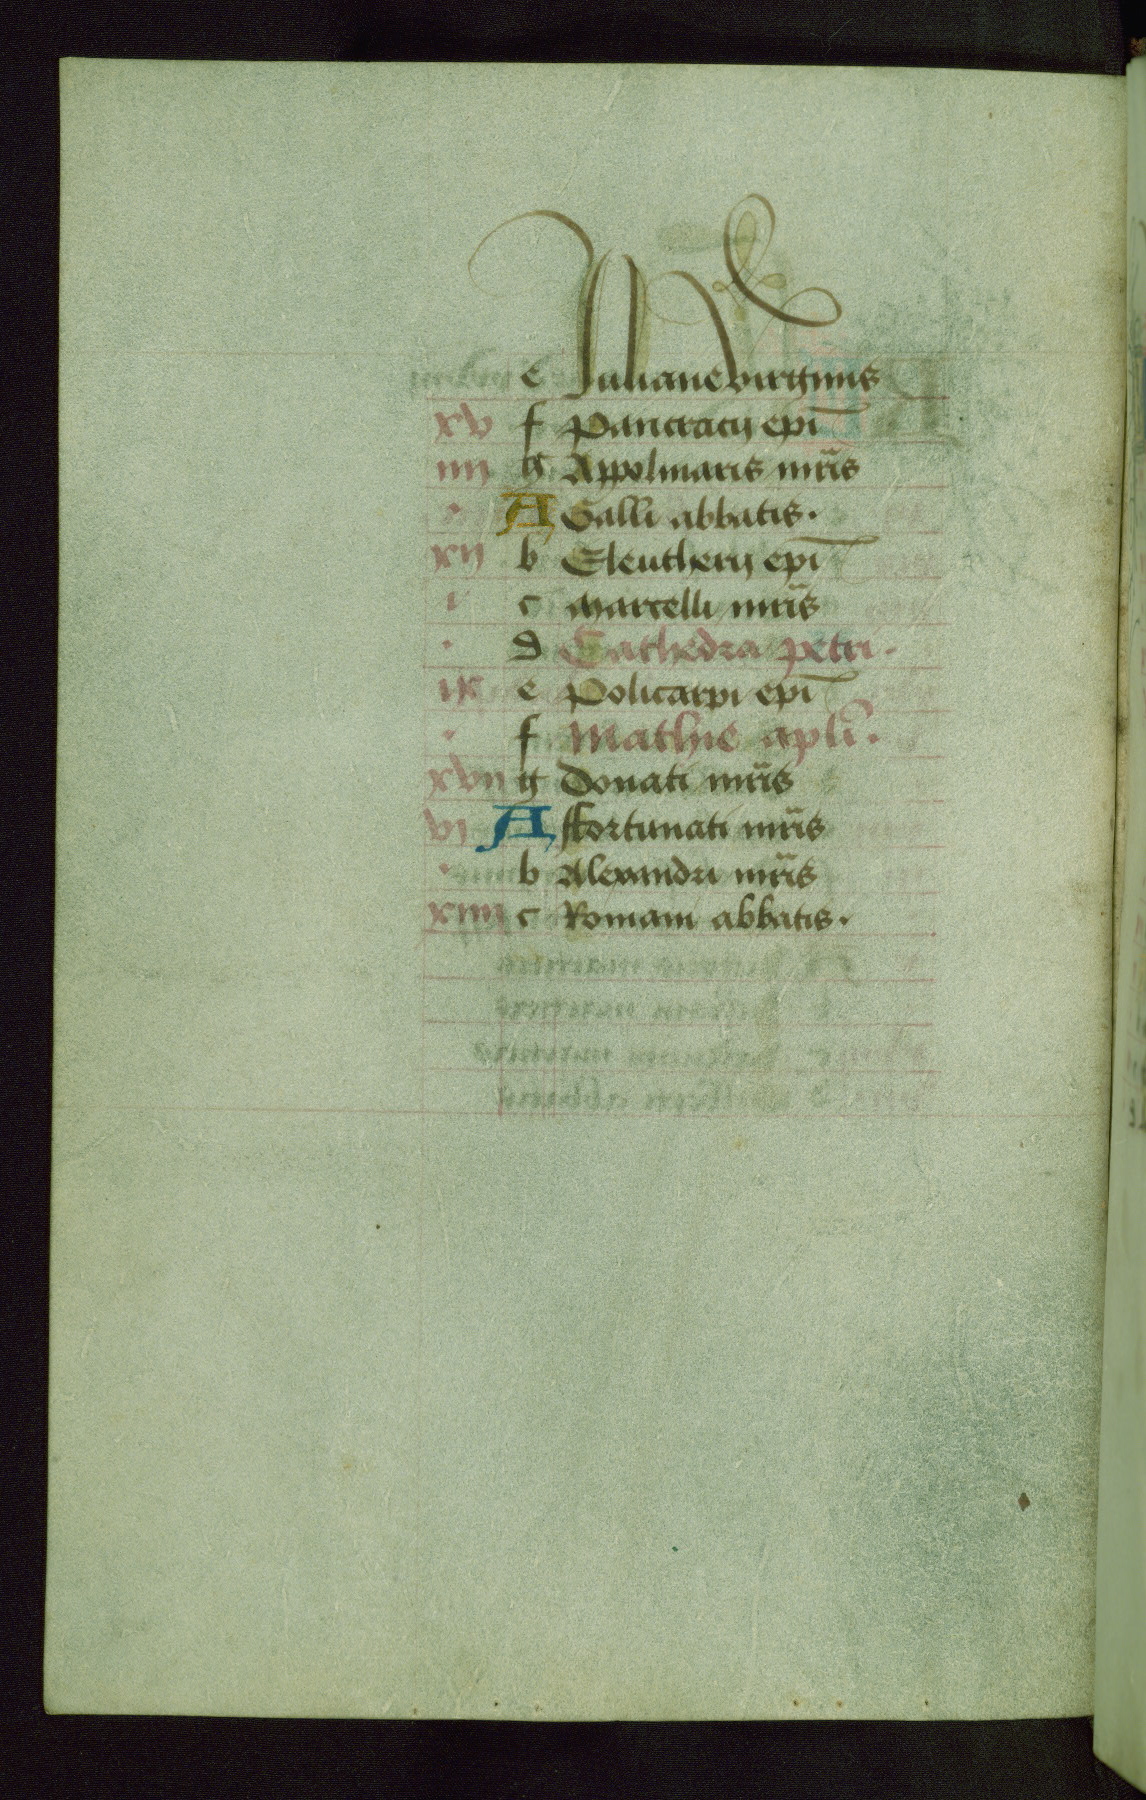 e Juliane virginis
xv f Pancracij epi
iiij g Appolinaris mris
A Galli abbatis.
xij b Eleutherij epi
i c Marcelli mris
d Cathedra petri.
ix e Policarpi epi
f Mathie apli.
xvij g Donati mris
vi A ffortunati mris
b Alexandri mris
xiiij c Romani abbatis.